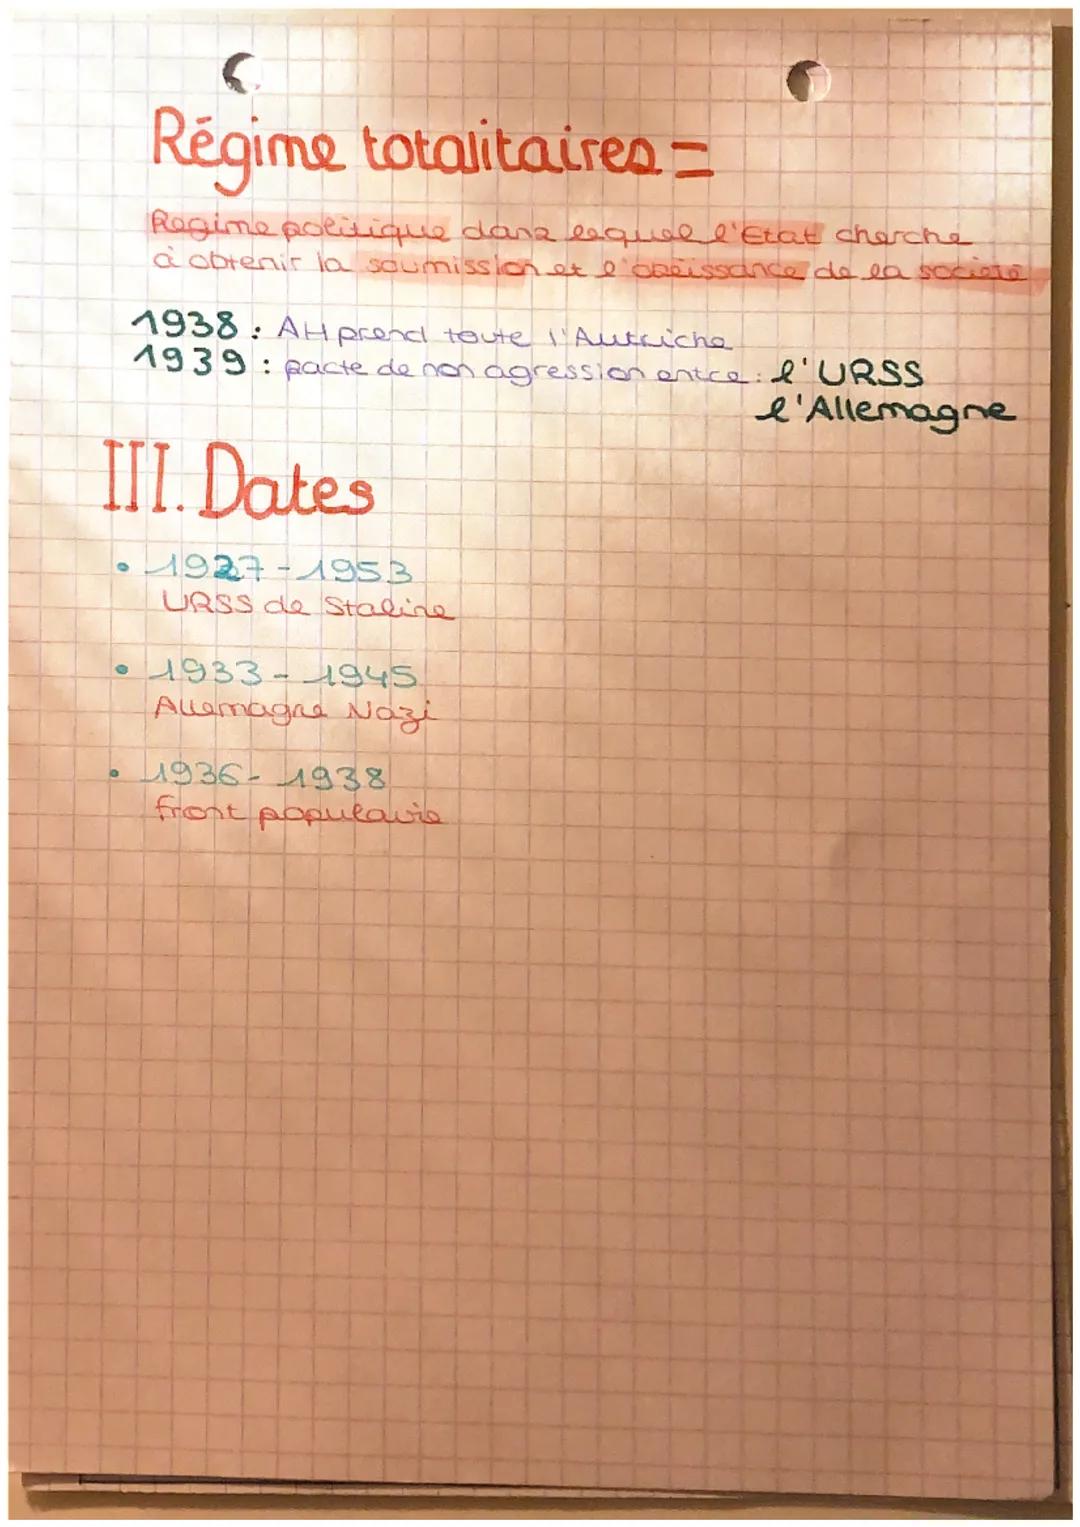 Régime totalitaires =
Regime politique dans lequel l'Etat cherche
à obtenir la soumission et l'obéissance de la société
1938 : AH prend toute l'Autriche
1939 : pacte de non agression entre : l'URSS
l'Allemagne
III. Dates
• 1927 - 1953
URSS de Staline
• 1933 - 1945
Allemagne Nazi
• 1936 - 1938
front populaire